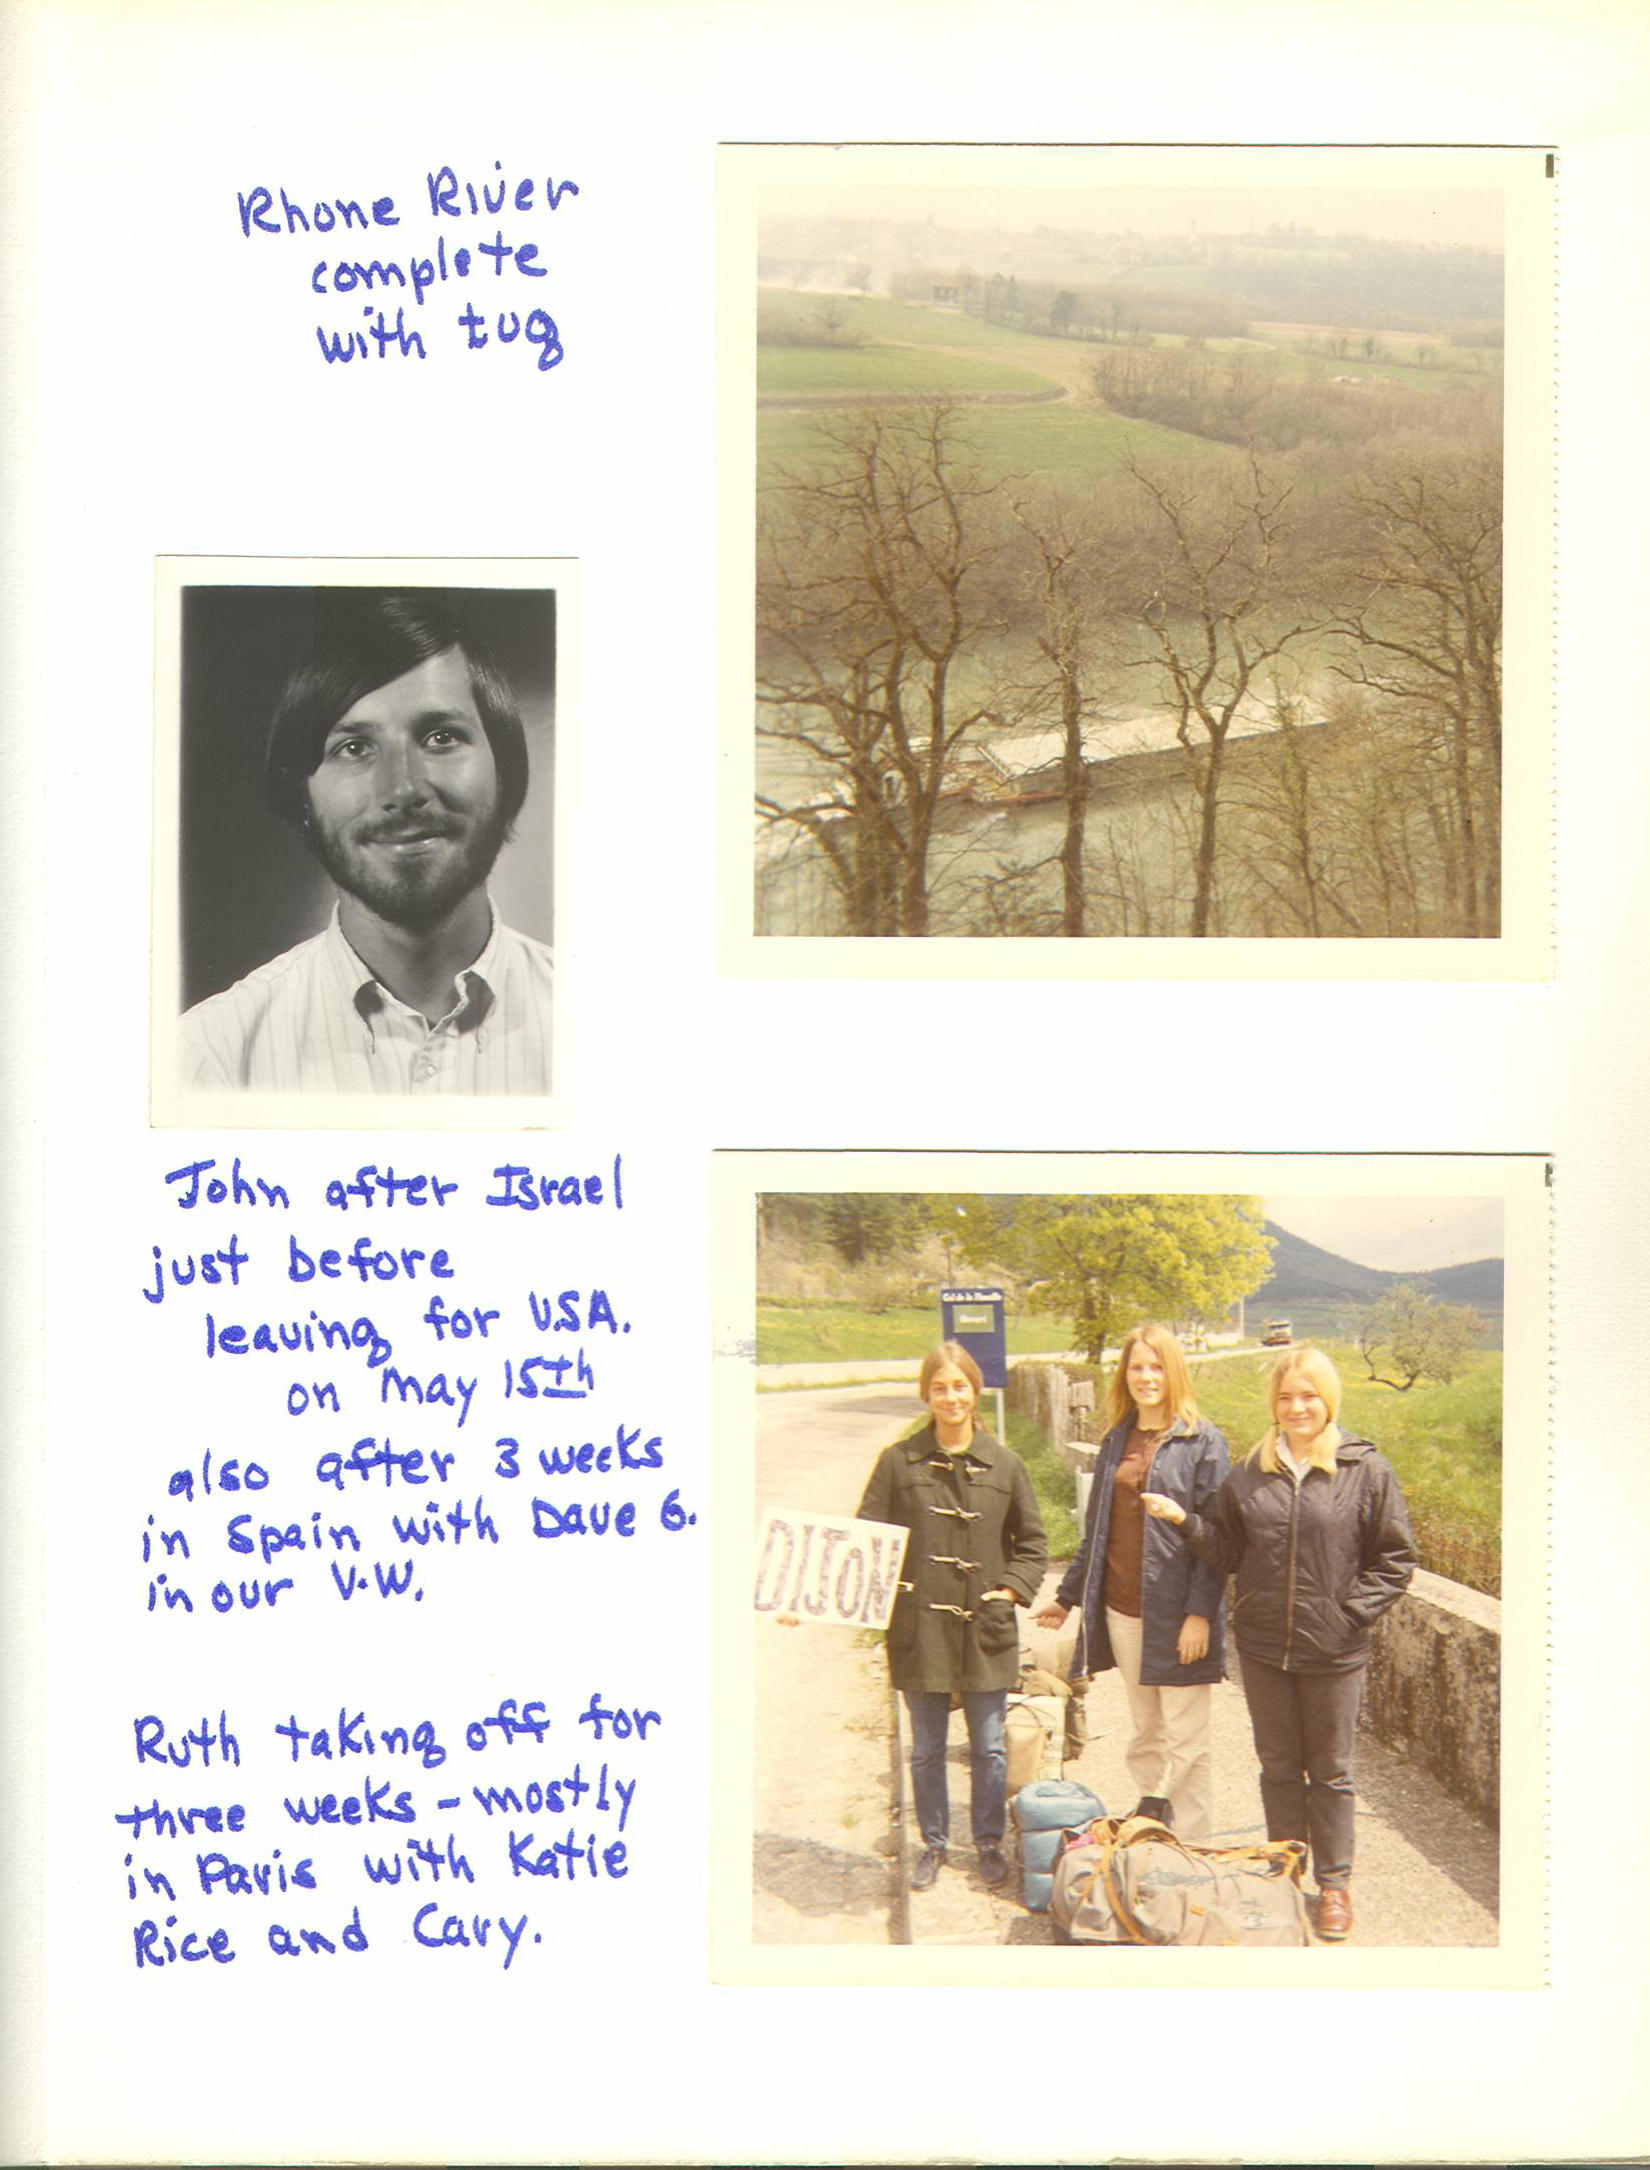 Rhone River
complete
with tug
John after Israel
just before
leaving for USA.
on May 15th
also after 3 weeks
in Spain with Dave G.
in our V.W.
Ruth taking off for
three weeks - mostly
in Paris with Katie
Rice and Cary.
Col de la Faucille
Ouvert
DIJON